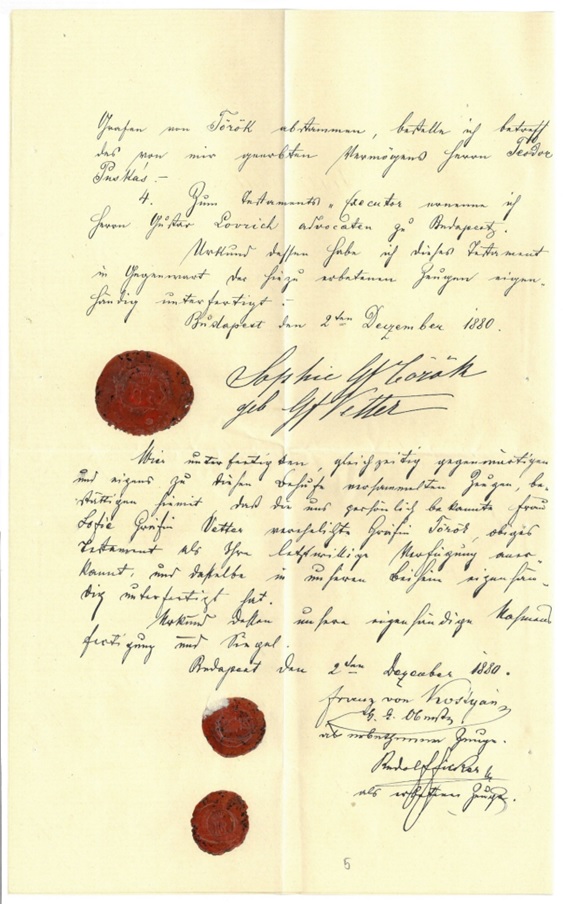 Grafen von Török abstammen, bestelle ich betreff
des von mir geerbten Vermögens Herrn Teodor
Puskás. –
4. Zum Testaments-Executor ernenne ich
Herrn Gustav Lovrich advocaten zu Budapest.
Urkund dessen habe ich dieses Testament
in Gegenwart der hiezu erbetenen Zeugen eigen-
händig unterfertigt –
Budapest den 2ten Dezember 1880.
Sophie Gf Török
geb Gf Vetter
Wir unterfertigten, gleichzeitig gegenwärtigen
und eigens zu diesem Behufe versammelten Zeugen, be-
stättigen hiemit daß die uns persönlich bekannte Frau
Sofie Gräfin Vetter verehelichte Gräfin Török obiges
Testament als Ihre letztwillige Verfügung aner-
kannt, und dasselbe in unserem Beisein eigenhän-
dig unterfertigt hat.
Urkund dessen unsere eigenhändige Namens
fertigung und Siegel.
Budapest den 2ten Dezember 1880.
Franz von
k. k. Oberst
als erbethener Zeuge.
Rudolf
als erbetener Zeuge.
5